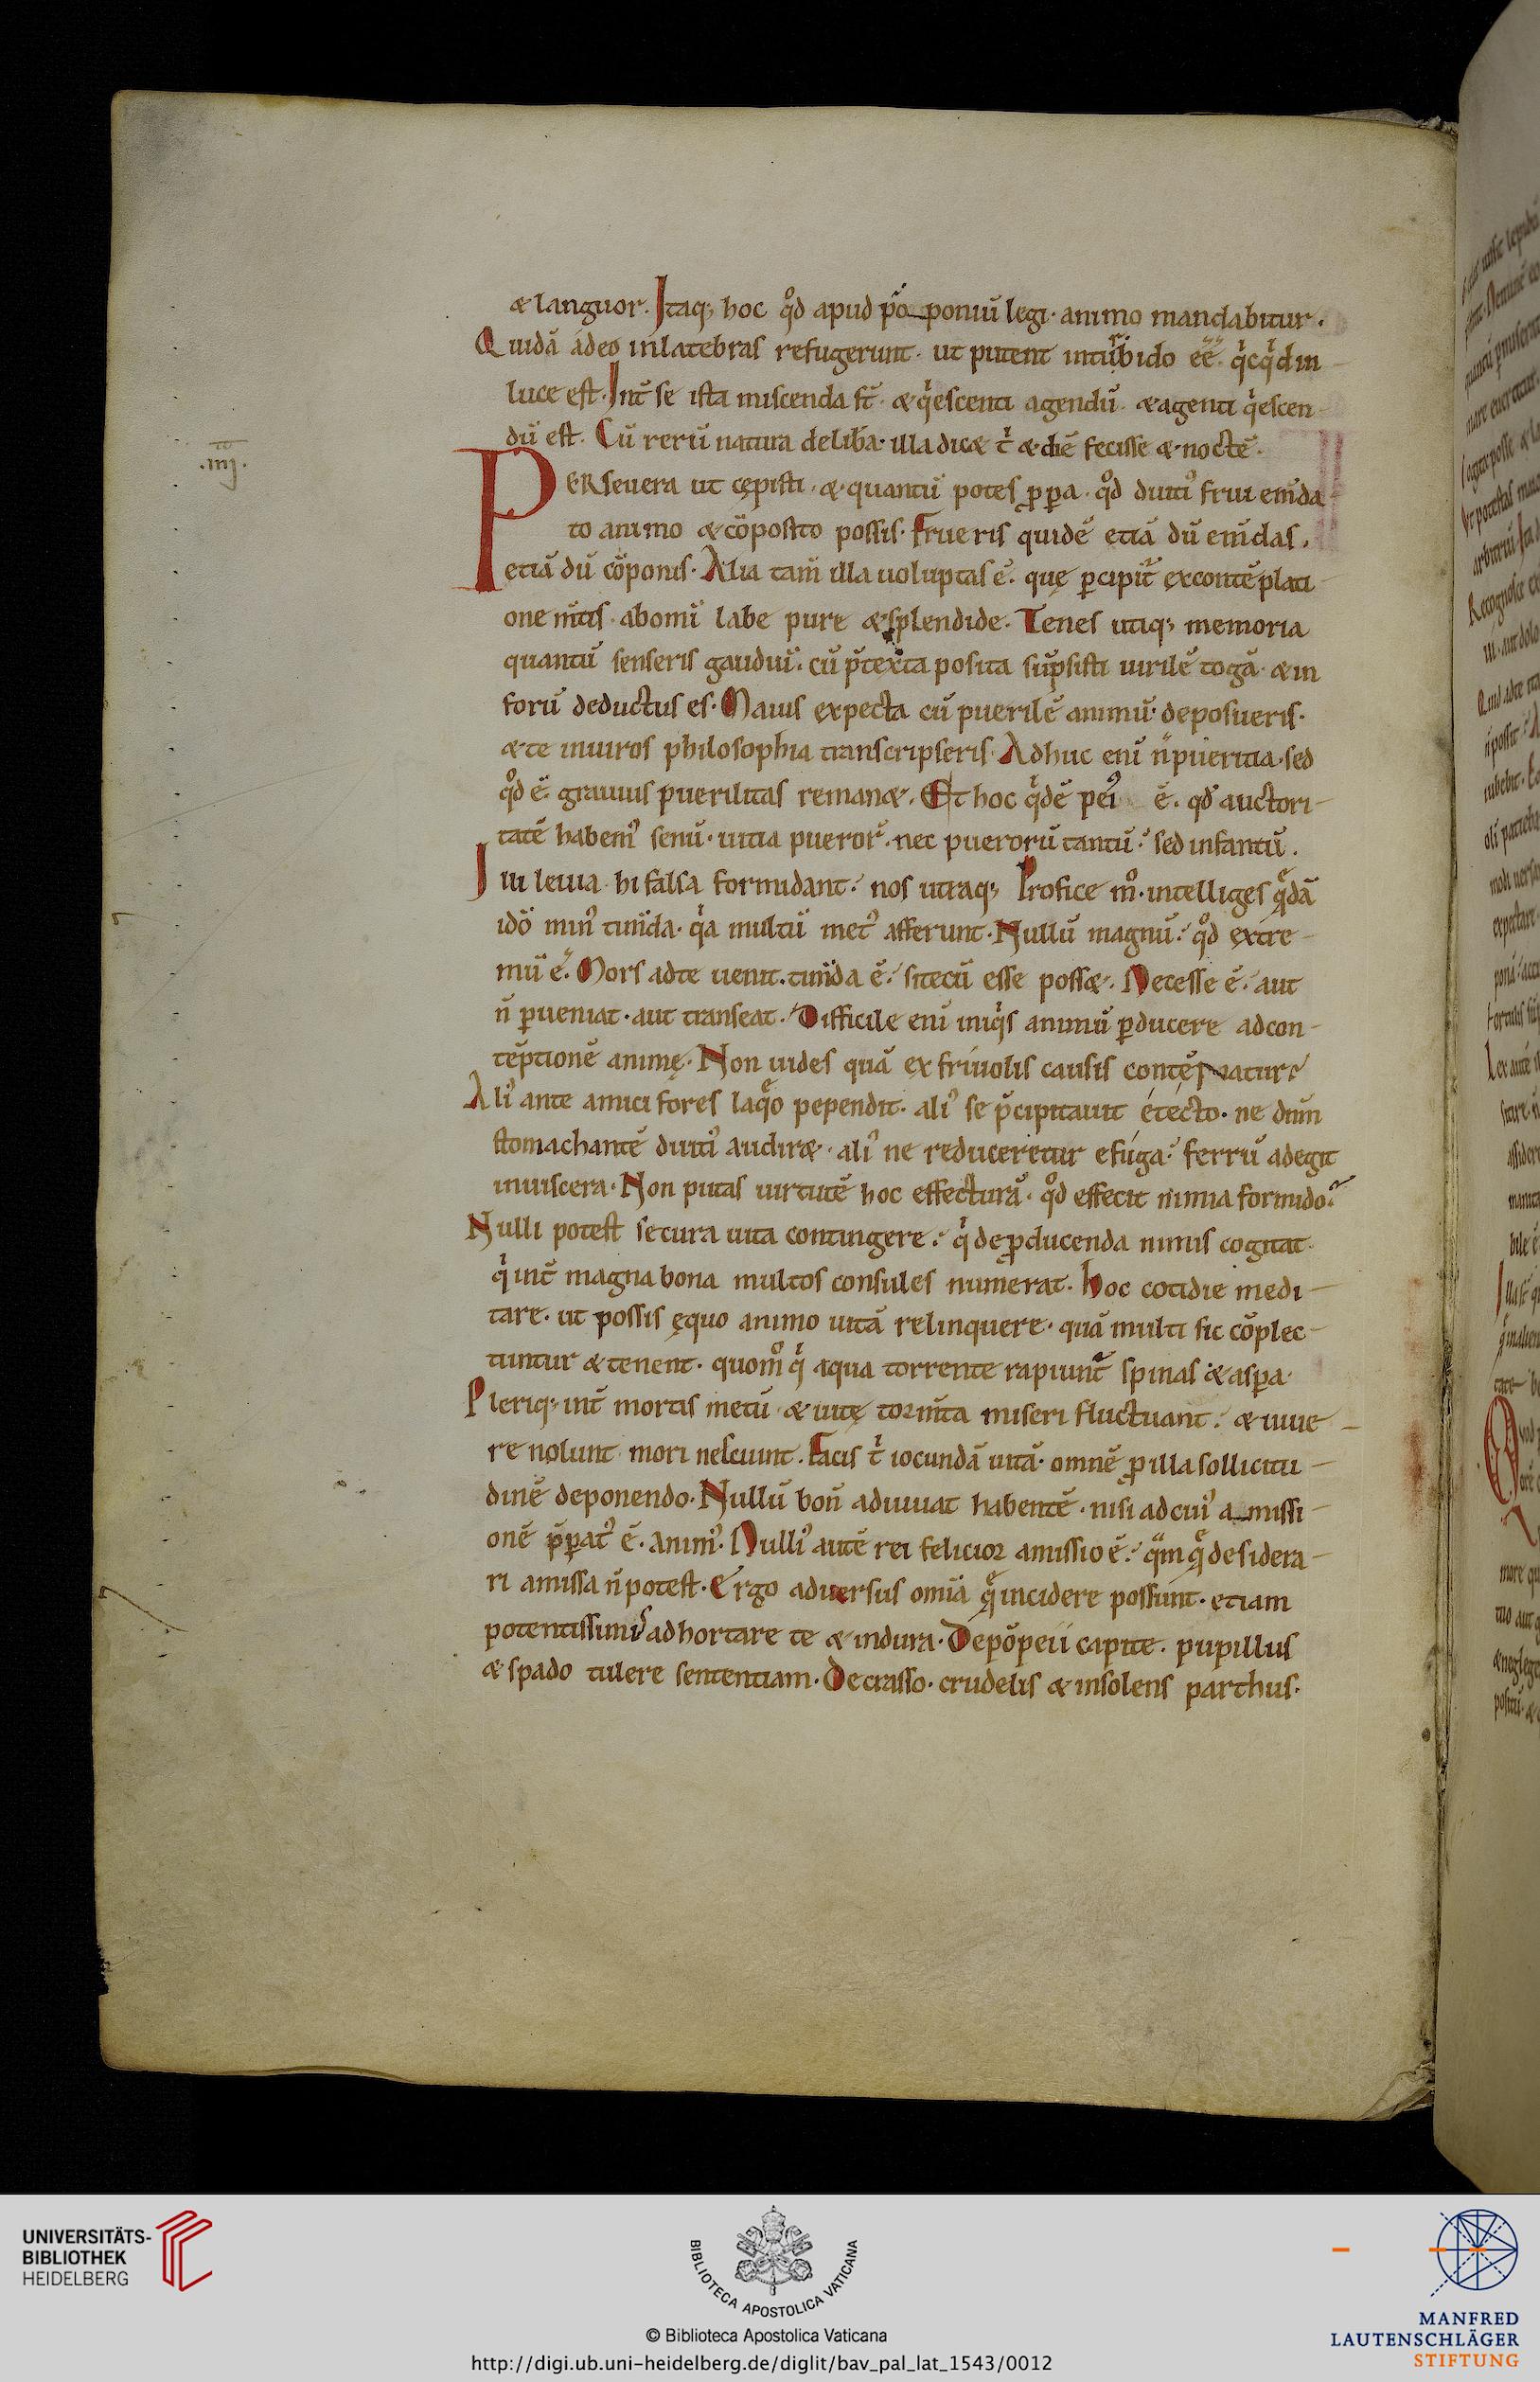 & languor. Itaq; hoc qd̊ apud põ poniũ legi. animo mandabitur.
Quidã adeo inlatebras refugerunt. ut putent inturbido eẽ. qicqid in
luce est. Int̃ se ista miscenda st̃. & qiescenti agendũ. & agenti qiescen
dũ est. Cũ rerũ natura delib̃a. illa dic& t^i & diẽ fecisse & noctẽ.
.iiij.
PERseuera ut cępisti. & quantũ potes ꝓꝑa. qd̊ diuti᾽ frui em̃da
to animo & cõposito possis. Frueris quidẽ etiã dũ em̃das.
etiã dũ cõponis. Alia tam̃ illa uoluptas ẽ. quę ꝑcipit̃ excontẽplati
one m̃tis. abomĩ labe pure & splendide. Tenes utiq; memoria
quantũ senseris gaudiũ. cũ p̃texta posita sũpsisti uirilẽ togã. & in
forũ deductus es. Maius expecta cũ puerilẽ animũ deposueris.
& te inuiros philosophia transcripseris. Adhuc enĩ ñ pueritia. sed
qd̊ ẽ. grauius puerilitas reman&. Et hoc qidẽ pei᾽ ẽ. qd̊ auctori
tatẽ habem᾽ senũ. uitia pueror̃. nec puerorũ tantũ. sed infantũ.
Illi leuia. hi falsa formidant. nos utraq; Profice m̊. intelliges qdã
idõ min᾽ tim̃da. qia multũ met᾽ afferunt. Nullũ magnũ. qd̊ extre
mũ ẽ. Mors adte uenit. tim̃da ẽ. sitecũ esse poss&. Necesse ẽ. aut
ñ ꝑueniat. aut transeat. Difficile enĩ inqis animũ ꝑducere adcon
tẽptionẽ animę. Non uides quã ex friuolis causis contẽpnatur.
Ali᾽ ante amici fores laqo pependit. ali᾽ se p̃cipitauit etecto. ne dñm
stomachantẽ diuti᾽ audir&. ali᾽ ne reduceretur efuga. ferrũ adegit
inuiscera. Non putas uirtutẽ hoc effecturã. qd̊ effecit nimia formido.
Nulli potest secura uita contingere. qi deꝓducenda nimis cogitat.
qi int̃ magna bona multos consules numerat. Hoc cotidie medi
tare. ut possis ęquo animo uitã relinquere. quã multi sic cõplec
tuntur & tenent. quom̊ qi aqua torrente rapiunt̃ spinas & asꝑa.
Pleriq; int̃ mortis metũ & uitę torm̃ta miseri fluctuant. & uiue
re nolunt mori nesciunt. Facis t^i iocundã uitã. omnẽ ꝓ illa sollicitu
dinẽ deponendo. Nullũ boñ adiuuat habentẽ. nisi ad cui᾽ amissi
onẽ p̃parat᾽ ẽ. anim᾽. Nulli᾽ autẽ rei felicior amissio ẽ. qãm q̃ desidera
ri amissa ñ potest. Ergo aduersus om̃ia q̃ incidere possunt. etiam
potentissimis adhortare te & indura. Depõpeii capite. pupillus
& spado tulere sententiam. Decrasso. crudelis & insolens parthus.
UNIVERSITÄTS-
BIBLIOTHEK
HEIDELBERG
BIBLIOTECA APOSTOLICA VATICANA
© Biblioteca Apostolica Vaticana
http://digi.ub.uni-heidelberg.de/diglit/bav_pal_lat_1543/0012
MANFRED
LAUTENSCHLÄGER
STIFTUNG